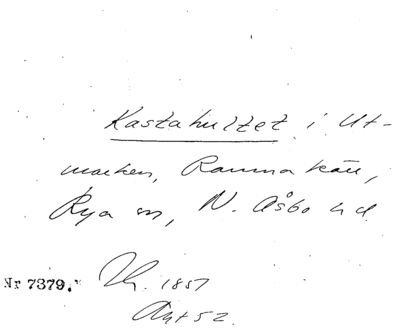 Kastahultet i Ut-
marken, Ramna kärr,
Rya sn, N. Åsbo hd.
Nr 7379.
1857
Akt 52.